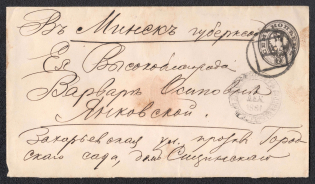 Въ Минскъ губернск
Ея Высокоблагородію
Варваръ Осиповнъ
Янковской.
Захарьевская ул. противъ Город
скаго сада, домъ Сицинскаго